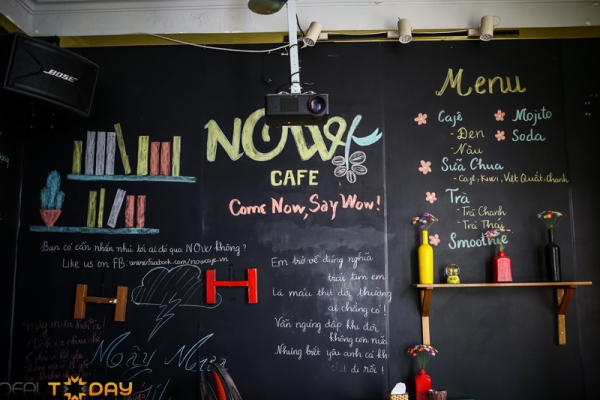 BOSE
NOW
CAFE
Come Now, Say Wow!
Bạn có cần nhắn nhủ tới ai đó qua NOW không?
Like us on FB: www.facebook.com/nowcafe.vn
Menu
Cafê
- Đen
- Nâu
Sữa Chua
- Cafê, Kiwi, Việt Quất, Chanh
Trà
- Trà Chanh
- Trà Thái
Smoothie
Mojito
Soda
Em trở về đúng nghĩa
trái tim em
Là máu thịt đời thường
ai chẳng có!
Vẫn ngừng đập khi đời
không còn nữa
Nhưng biết yêu anh cả khi
chết đi rồi!
Mây Mưa
DEAL TODAY